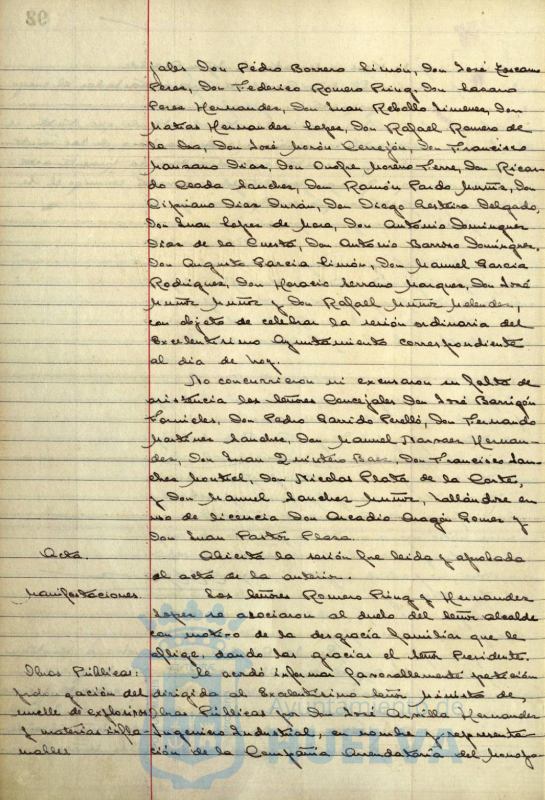 jales Don Pedro Borrero Limón, Don José Toscano
Perez, Don Federico Romero Pring, Don Casano
Perez Hernandez, Don Juan Rebollo Jimenez, Don
Matias Hernandez Lopez, Don Rafael Romero de
la Osa, Don José Morón Cerrejón, Don Francisco
Manzano Dias, Don Onofre Moreno Ferre, Don Ricar-
do Ceada Sanchez, Don Ramón Pardo Muñiz, Don
Cipriano Dias Durán, Don Diego Delgado,
Don Juan Lopez de Mora, Don Antonio Dominguez
Dias de la Cuesta, Don Antonio Barroso Dominguez,
Don Augusto Garcia Limón, Don Manuel Garcia
Rodriguez, Don Horacio Serrano Marquez, Don José
Muñiz Muñoz y Don Rafael Muñiz Melendez,
con objeto de celebrar la sesión ordinaria del
Excelentisimo Ayuntamiento correspondiente
al dia de hoy.
No concurrieron ni excusaron su falta de
asistencia los señores Concejales Don José Barrigón
Fornieles, Don Pedro Garrido Perelló, Don Fernando
Martinez Sanchez, Don Manuel Narvaez Hernan-
dez, Don Juan Quintero Baez, Don Francisco San-
chez Montiel, Don Nicolas Plata de la Corte,
y Don Manuel Sanchez Muñoz, hallándose en
uso de licencia Don Arcadio Aragón Gomez y
Don Juan Pastor Plaza.
Acta.
Abierta la sesión fue leida y aprobada
al acta de la anterior.
Manifestaciones.
Los señores Romero Pring y Hernandez
Lopez se asociaron al duelo del señor Alcalde
con motivo de la desgracia familias que le
aflige, dando las gracias el señor Presidente.
Obras Públicas:
prolongación del
muelle de explosivos
y materias infla-
mables
Se acordó informar favorablemente petición
dirigida al Excelentisimo señor Ministro de
Obras Públicas por Don José Ansilla Hernandez
Ingeniero Industrial, en nombre y representa-
ción de la Compañia Arrendataria del Monopo-
Ayuntamiento de
HUELVA
92